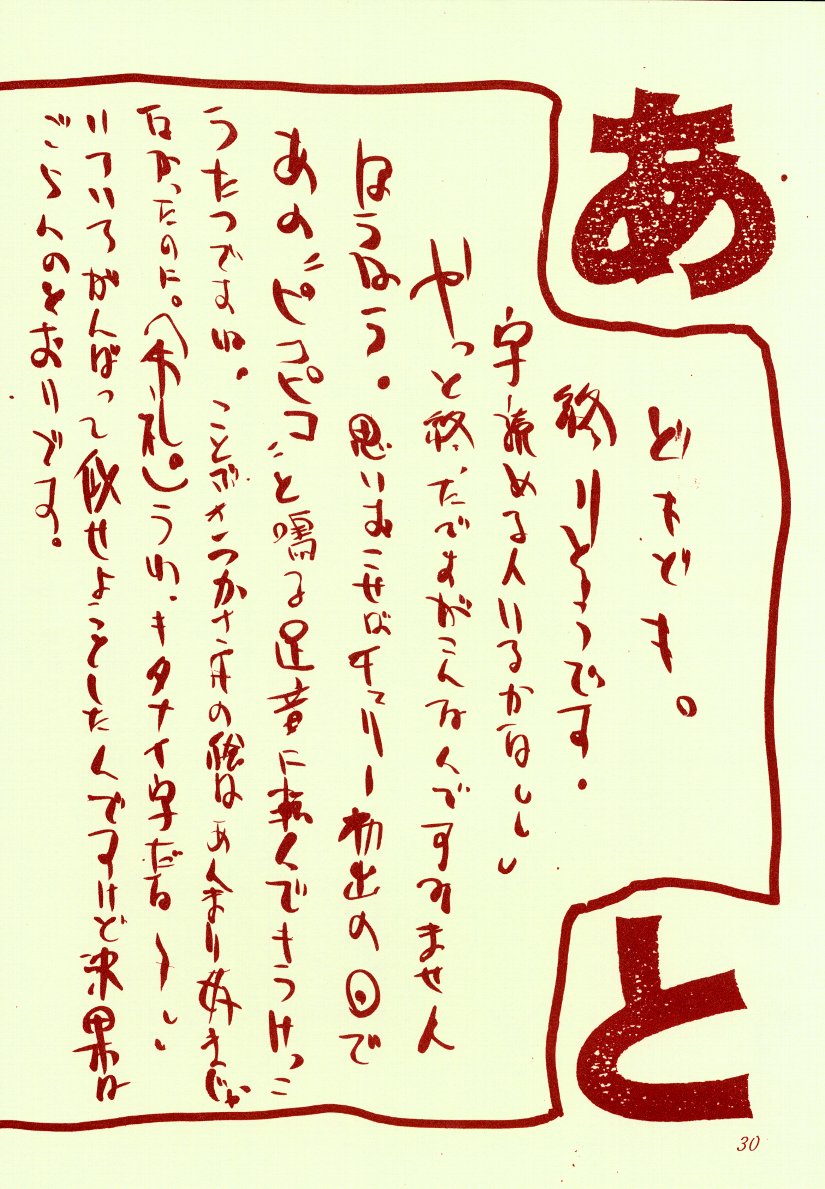 あと
どもども。
終りそうです.
字読める人いるかなししし
やっと終ったですがこんなんですみません
ほうほう。思いおこせばチェリー初出の回で
あの"ピコピコ"と鳴る足音に転んでもうけっこ
うたつですね。ことぶきつかさ氏の絵はあんまり好きじゃ
なかったのに。(失礼。)うわ、キタナイ字だな〜しし
いろいろがんばって似せようとしたんですけど結果は
ごらんのとおりです。
30